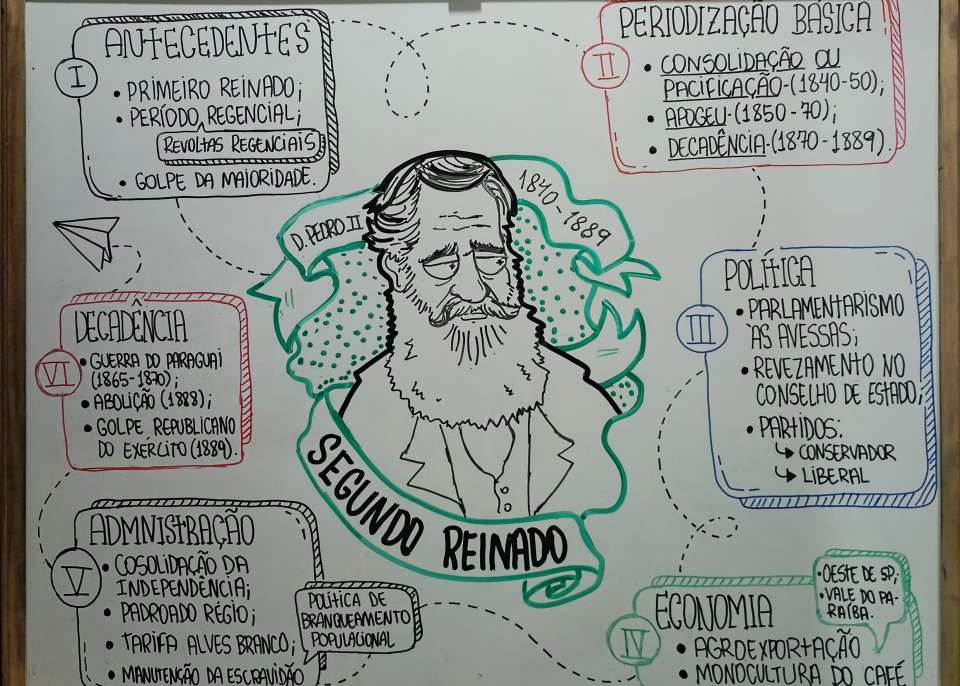 I
ANTECEDENTES
• PRIMEIRO REINADO;
• PERÍODO REGENCIAL;
REVOLTAS REGENCIAIS
• GOLPE DA MAIORIDADE.
II
PERIODIZAÇÃO BÁSICA
• CONSOLIDAÇÃO OU
PACIFICAÇÃO-(1840-50);
• APOGEU-(1850-70);
• DECADÊNCIA-(1870-1889).
D. PEDRO II
1840-1889
SEGUNDO REINADO
III
POLÍTICA
• PARLAMENTARISMO
ÀS AVESSAS;
• REVEZAMENTO NO
CONSELHO DE ESTADO;
• PARTIDOS:
↳ CONSERVADOR
↳ LIBERAL
IV
ECONOMIA
• OESTE DE SP;
• VALE DO PA-
RAÍBA.
• AGROEXPORTAÇÃO
• MONOCULTURA DO CAFÉ
V
ADMNISTRAÇÃO
• COSOLIDAÇÃO DA
INDEPENDÊNCIA;
• PADROADO RÉGIO;
• TARIFA ALVES BRANCO;
• MANUTENÇÃO DA ESCRAVIDÃO
POLÍTICA DE
BRANQUEAMENTO
POPULACIONAL
VI
DECADÊNCIA
• GUERRA DO PARAGUAI
(1865-1870);
• ABOLIÇÃO (1888);
• GOLPE REPUBLICANO
DO EXÉRCITO (1889).